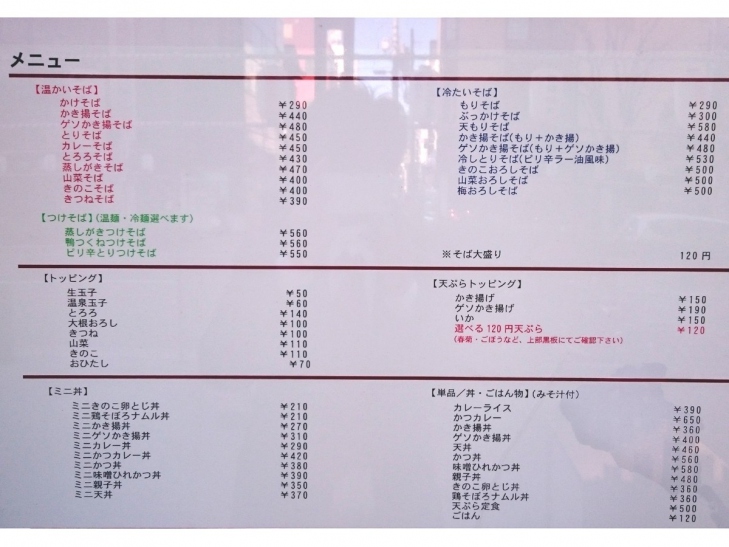 メニュー
【温かいそば】
かけそば ￥290
かき揚そば ￥440
ゲソかき揚そば ￥480
とりそば ￥450
カレーそば ￥450
とろろそば ￥430
蒸しがきそば ￥470
山菜そば ￥400
きのこそば ￥400
きつねそば ￥390
【つけそば】(温麺・冷麺選べます)
蒸しがきつけそば ￥560
鴨つくねつけそば ￥560
ピリ辛とりつけそば ￥550
【冷たいそば】
もりそば ￥290
ぶっかけそば ￥300
天もりそば ￥580
かき揚そば(もり＋かき揚) ￥440
ゲソかき揚そば(もり＋ゲソかき揚) ￥480
冷しとりそば(ピリ辛ラー油風味) ￥530
きのこおろしそば ￥500
山菜おろしそば ￥500
梅おろしそば ￥500
※そば大盛り 120円
【トッピング】
生玉子 ￥50
温泉玉子 ￥60
とろろ ￥140
大根おろし ￥100
きつね ￥100
山菜 ￥110
きのこ ￥110
おひたし ￥70
【天ぷらトッピング】
かき揚げ ￥150
ゲソかき揚げ ￥190
いか ￥150
選べる120円天ぷら ￥120
(春菊・ごぼうなど、上部黒板にてご確認下さい)
【ミニ丼】
ミニきのこ卵とじ丼 ￥210
ミニ鶏そぼろナムル丼 ￥210
ミニかき揚丼 ￥270
ミニゲソかき揚丼 ￥310
ミニカレー丼 ￥290
ミニかつカレー丼 ￥420
ミニかつ丼 ￥380
ミニ味噌ひれかつ丼 ￥390
ミニ親子丼 ￥350
ミニ天丼 ￥370
【単品／丼・ごはん物】(みそ汁付)
カレーライス ￥390
かつカレー ￥650
かき揚丼 ￥360
ゲソかき揚丼 ￥400
天丼 ￥460
かつ丼 ￥560
味噌ひれかつ丼 ￥580
親子丼 ￥480
きのこ卵とじ丼 ￥360
鶏そぼろナムル丼 ￥360
天ぷら定食 ￥500
ごはん ￥120